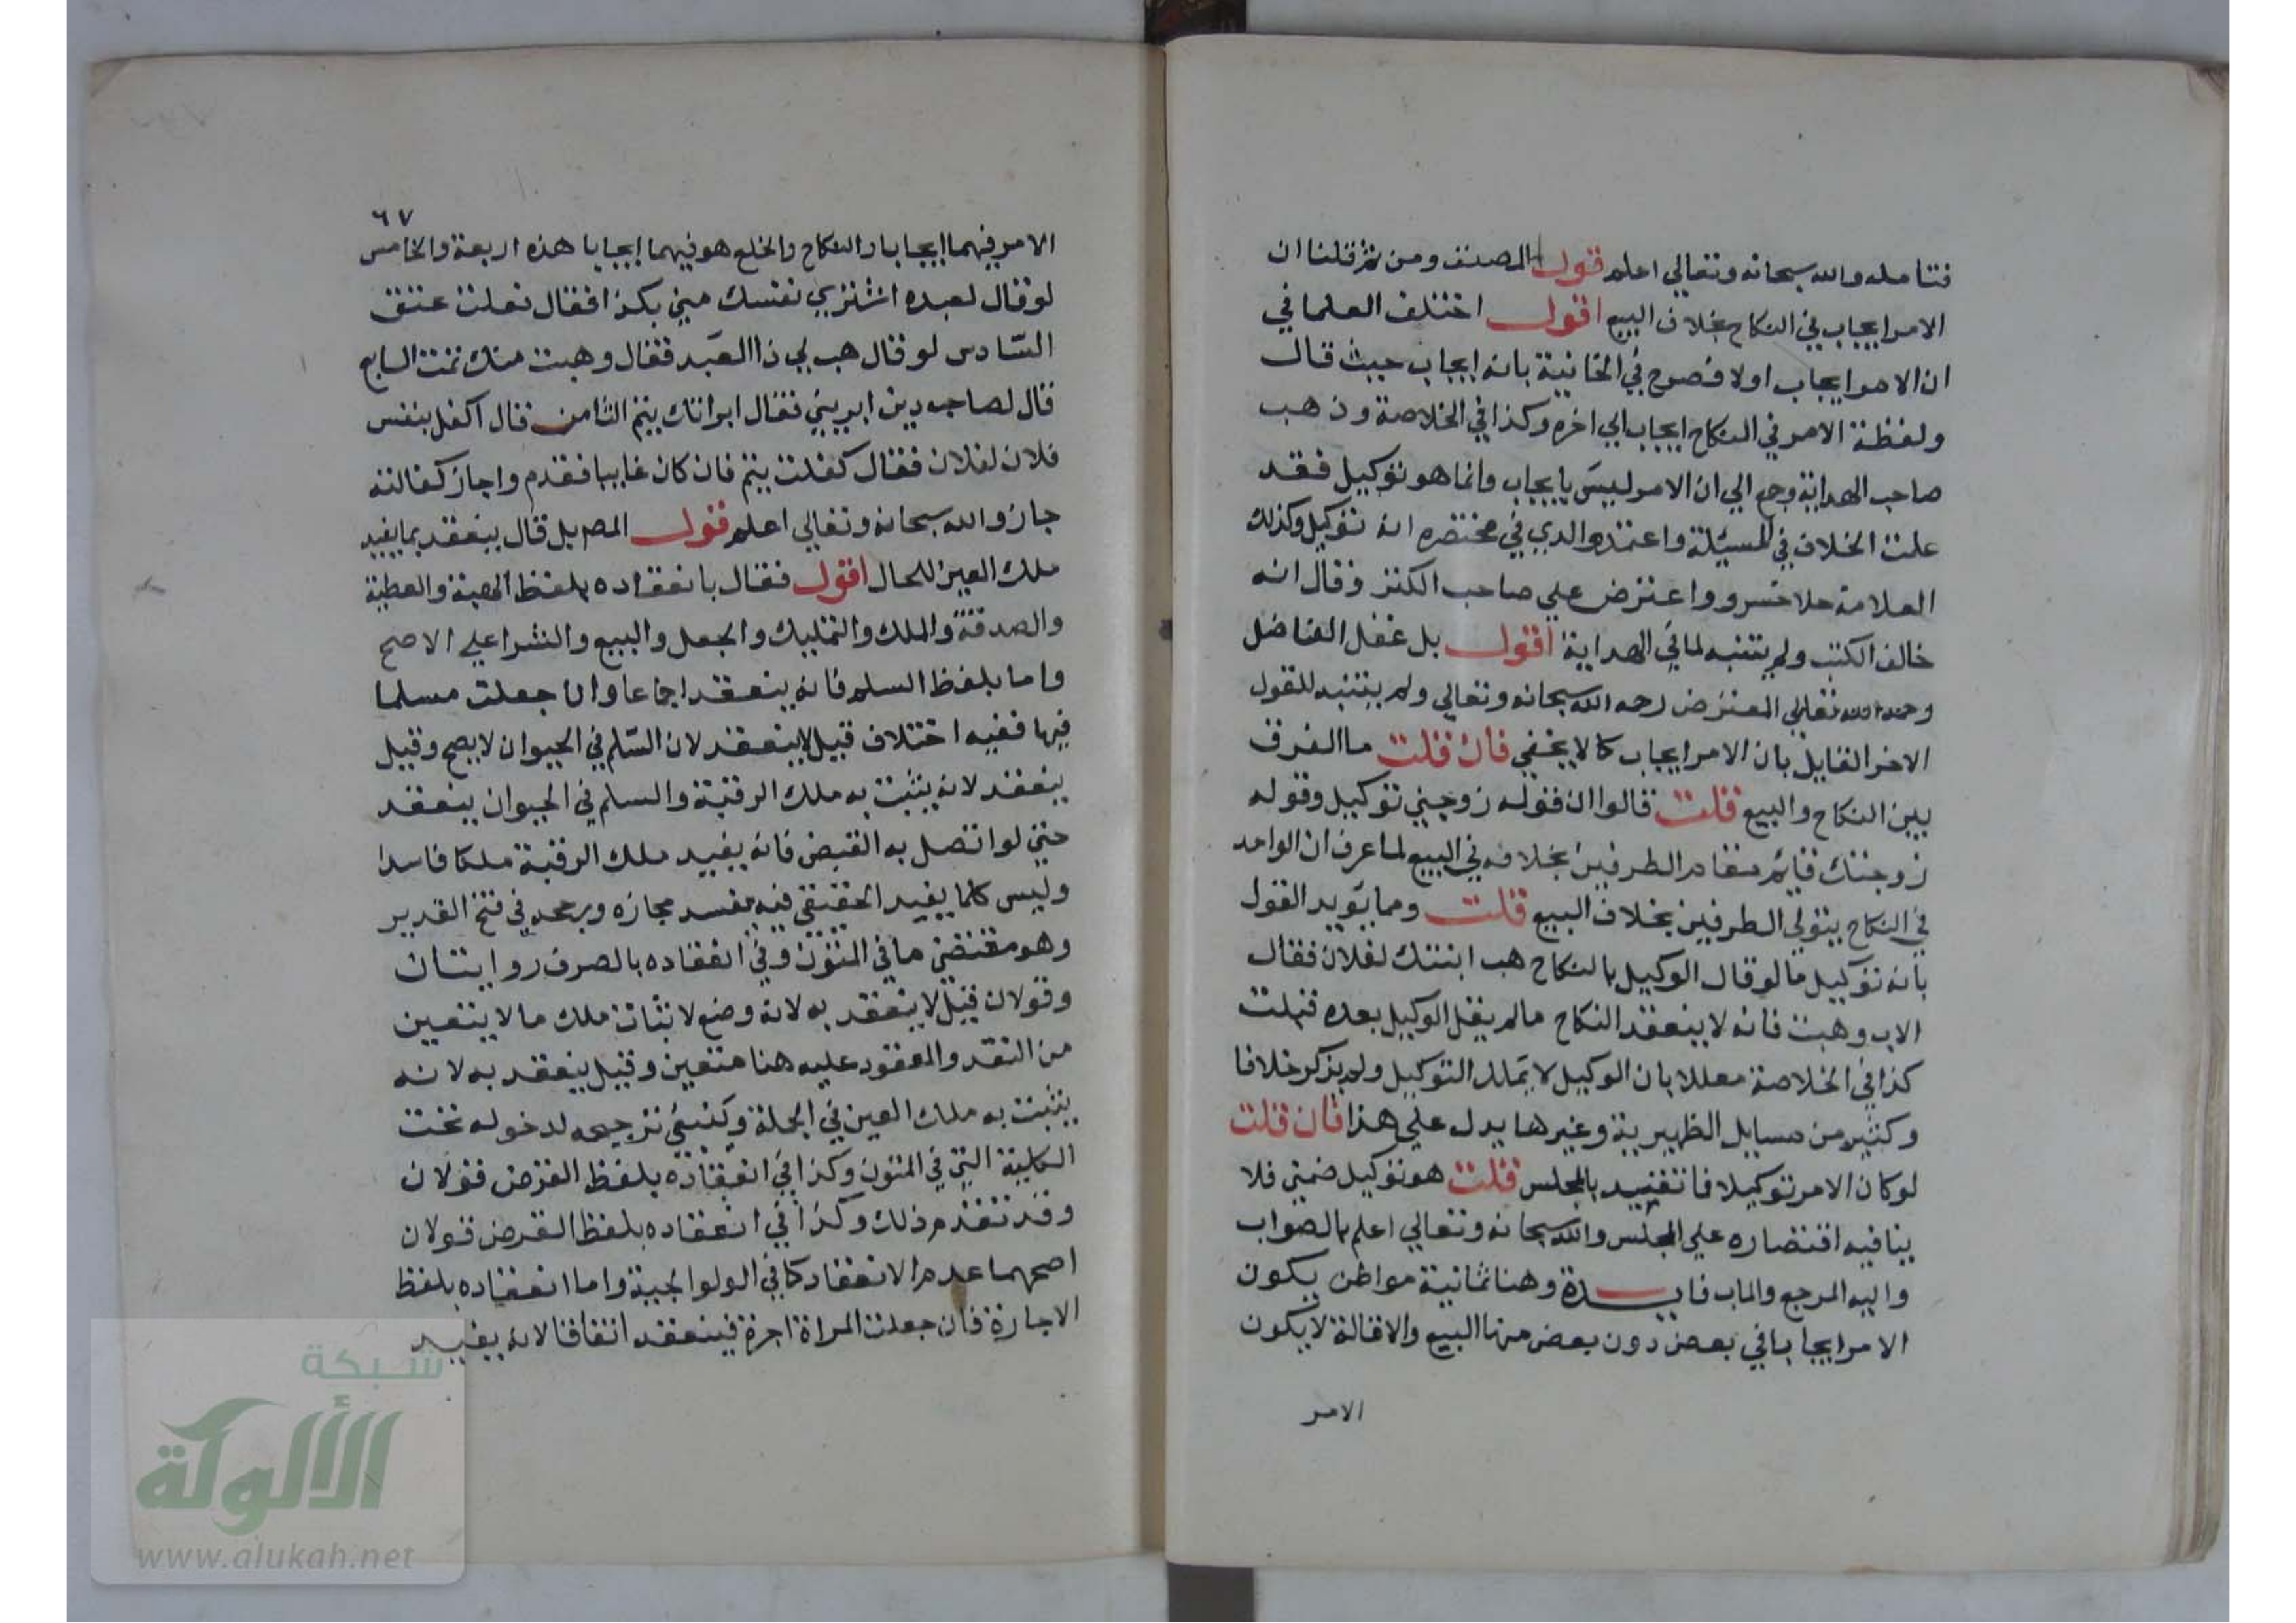 فتامله والله سبحانه وتعالي اعلم قول المصنف ومن ثم قلنا ان
الامر ايجاب في النكاح بخلاف البيع اقول اختلف العلما في
ان الامر ايجاب اولا فصرح في الخانية بانه ايجاب حيث قال
ولفظة الامر في النكاح ايجاب الي اخره وكذا في الخلاصة وذهب
صاحب الهداية والي ان الامر ليس بايجاب وانما هو توكيل فقد
علمت الخلاف في المسئلة واعتمد والدي في مختصره انه توكيل وكذلك
العلامة ملا خسرو واعترض علي صاحب الكنز وقال انه
خالف الكتب ولم يتنبه لما في الهداية اقول بل غفل الفاضل
المعترض رحمه الله سبحانه وتعالي ولم يتنبه للقول
الاخر القايل بان الامر ايجاب كما لا يخفي فان قلت ما الفرق
بين النكاح والبيع قلت قالوا ان قوله زوجني توكيل وقوله
زوجتك قايم مقام الطرفين بخلافه في البيع لما عرف ان الواحد
في النكاح يتولي الطرفين بخلاف البيع قلت ومما يؤيد القول
بانه توكيل ما لو قال الوكيل بالنكاح هب ابنتك لفلان فقال
الاب وهبت فانه لا ينعقد النكاح مالم يقل الوكيل بعده قبلت
كذا في الخلاصة معللا بان الوكيل لا يملك التوكيل ولم يذكر خلافا
وكثير من مسايل الظهيرية وغيرها يدل علي هذا فان قلت
لو كان الامر توكيلا فاتقييد بالمجلس قلت هو توكيل ضمني فلا
ينافيه اقتصاره علي المجلس والله سبحانه وتعالي اعلم بالصواب
واليه المرجع والماب فايدة وهنا ثمانية مواطن يكون
الامر ايجابا في بعض دون بعض منها البيع والاقالة لا يكون
الامر
٦٧
الامر فيهما ايجابا والنكاح والخلع هو فيهما ايجابا هذه اربعة والخامس
لو قال لعبده اشتري نفسك مني بكذا فقال فعلت عتق
السادس لو قال هب لي ذا العبد فقال وهبت منك تمت السابع
قال لصاحب دين ابريني فقال ابراتك يتم الثامن قال اكفل بنفس
فلان لفلان فقال كفلت يتم فان كان غايبا فقدم واجاز كفالته
جاز والله سبحانه وتعالي اعلم قول المص بل قال ينعقد بما يفيد
ملك العين للحال اقول فقال بانعقاده بلفظ الهبة والعطية
والصدقة والملك والتمليك والجعل والبيع والشرا علي الاصح
واما بلفظ السلم فانه ينعقد اجماعا وان جعلت مسلما
فيها ففيه اختلاف قيل لا ينعقد لان السلم في الحيوان لا يصح وقيل
ينعقد لانه يثبت به ملك الرقبة والسلم في الحيوان ينعقد
حتي لو اتصل به القبض فانه يفيد ملك الرقبة ملكا فاسدا
وليس كلما يفيد الحقيقي فيه مفسد مجازه ورجحه في فتح القدير
وهو مقتضي ما في المتون وفي انعقاده بالصرف روايتان
وقولان قيل لا ينعقد به لانه وضع لاثبات ملك ما لا يتعين
من النقد والمعقود عليه هنا متعين وقيل ينعقد به لانه
يثبت به ملك العين في الجملة وينبغي ترجيحه لدخوله تحت
الكلية التي في المتون وكذا في انعقاده بلفظ القرض قولان
وقد تقدم ذلك وكذا في انعقاده بلفظ القرض قولان
اصحهما عدم الانعقاد كما في الولوالجية واما انعقاده بلفظ
الاجارة فان جعلت المراة اجرة فينعقد اتفاقا لانه يفيد
شبكة
الألوكة
www.alukah.net